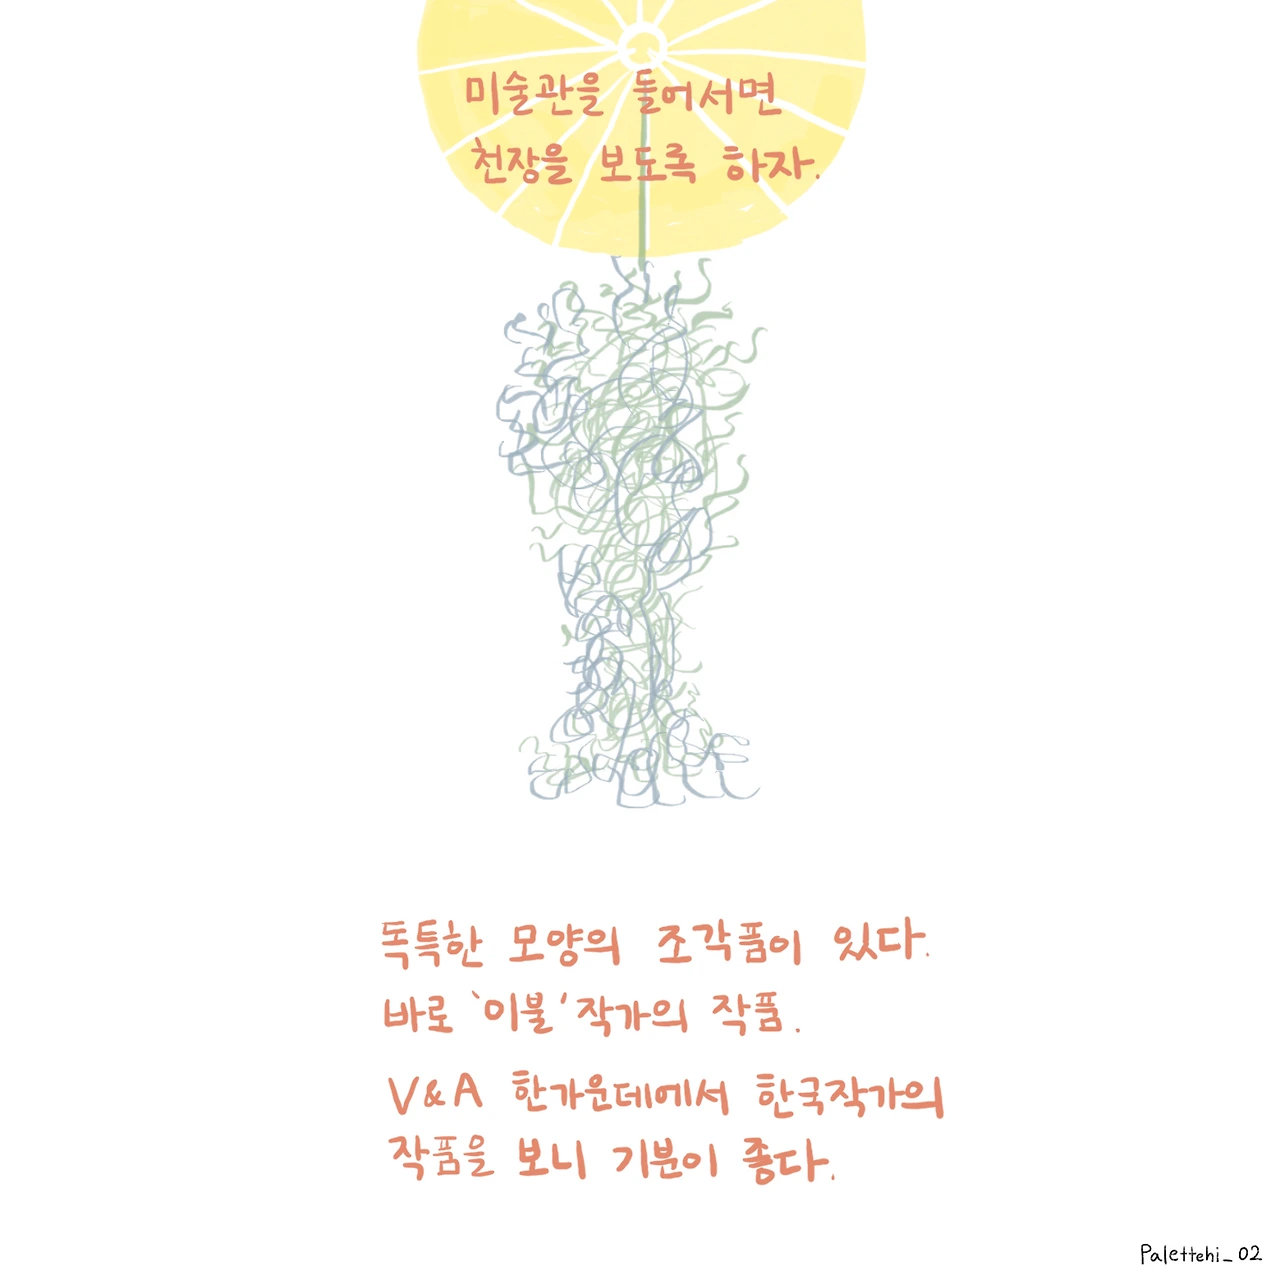 미술관을 들어서면
천장을 보도록 하자.
독특한 모양의 조각품이 있다.
바로 '이불' 작가의 작품.
V&A 한가운데에서 한국작가의
작품을 보니 기분이 좋다.
Palettehi_02